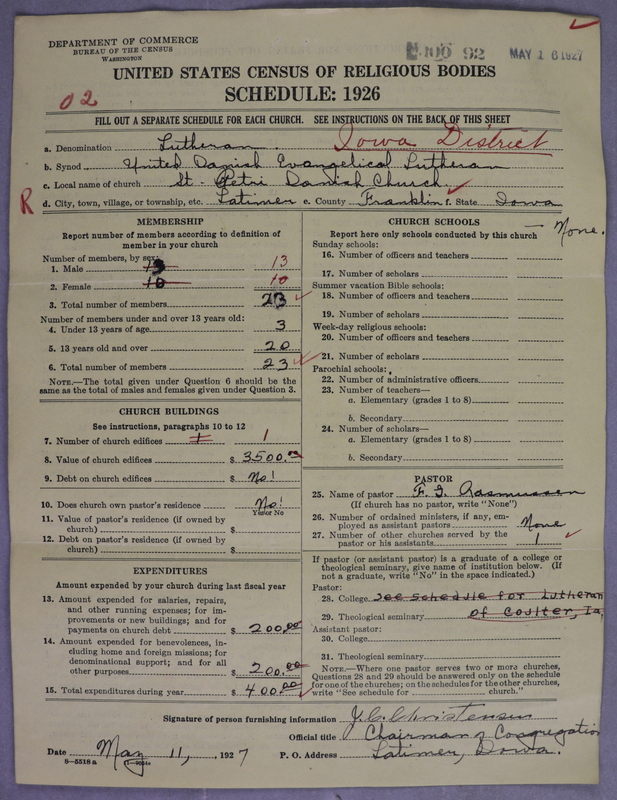 DEPARTMENT OF COMMERCE
BUREAU OF THE CENSUS
WASHINGTON
92 MAY 16 1927
UNITED STATES CENSUS OF RELIGIOUS BODIES
SCHEDULE: 1926
02
FILL OUT A SEPARATE SCHEDULE FOR EACH CHURCH. SEE INSTRUCTIONS ON THE BACK OF THIS SHEET
a. Denomination Lutheran. Iowa District
b. Synod United Danish Evangelical Lutheran
c. Local name of church St. Petri Danish Church
R d. City, town, village, or township, etc. Latimer e. County Franklin f. State Iowa
MEMBERSHIP
Report number of members according to definition of
member in your church
Number of members, by sex:
1. Male 13 13
2. Female 10 10
3. Total number of members 23
Number of members under and over 13 years old:
4. Under 13 years of age 3
5. 13 years old and over 20
6. Total number of members 23
NOTE.—The total given under Question 6 should be the
same as the total of males and females given under Question 3.
CHURCH BUILDINGS
See instructions, paragraphs 10 to 12
7. Number of church edifices 1 1
8. Value of church edifices $ 3500.00
9. Debt on church edifices $ No!
10. Does church own pastor's residence No!
Yes or No
11. Value of pastor's residence (if owned by
church) $
12. Debt on pastor's residence (if owned by
church) $
EXPENDITURES
Amount expended by your church during last fiscal year
13. Amount expended for salaries, repairs,
and other running expenses; for im-
provements or new buildings; and for
payments on church debt $ 200.00
14. Amount expended for benevolences, in-
cluding home and foreign missions; for
denominational support; and for all
other purposes $ 200.00
15. Total expenditures during year $ 400.00
CHURCH SCHOOLS
Report here only schools conducted by this church — None.
Sunday schools:
16. Number of officers and teachers
17. Number of scholars
Summer vacation Bible schools:
18. Number of officers and teachers
19. Number of scholars
Week-day religious schools:
20. Number of officers and teachers
21. Number of scholars
Parochial schools:
22. Number of administrative officers
23. Number of teachers—
a. Elementary (grades 1 to 8)
b. Secondary
24. Number of scholars—
a. Elementary (grades 1 to 8)
b. Secondary
PASTOR
25. Name of pastor F. I. Rasmussen
(If church has no pastor, write "None")
26. Number of ordained ministers, if any, em-
ployed as assistant pastors None
27. Number of other churches served by the
pastor or his assistants 1
If pastor (or assistant pastor) is a graduate of a college or
theological seminary, give name of institution below. (If
not a graduate, write "No" in the space indicated.)
Pastor:
28. College See schedule for Lutheran
29. Theological seminary of Coulter, Ia.
Assistant pastor:
30. College
31. Theological seminary
NOTE.—Where one pastor serves two or more churches,
Questions 28 and 29 should be answered only on the schedule
for one of the churches; on the schedules for the other churches,
write "See schedule for church."
Signature of person furnishing information J. C. Christensen
Official title Chairman of Congregation
Date May 11, 1927 P. O. Address Latimer, Iowa.
8—5518 a